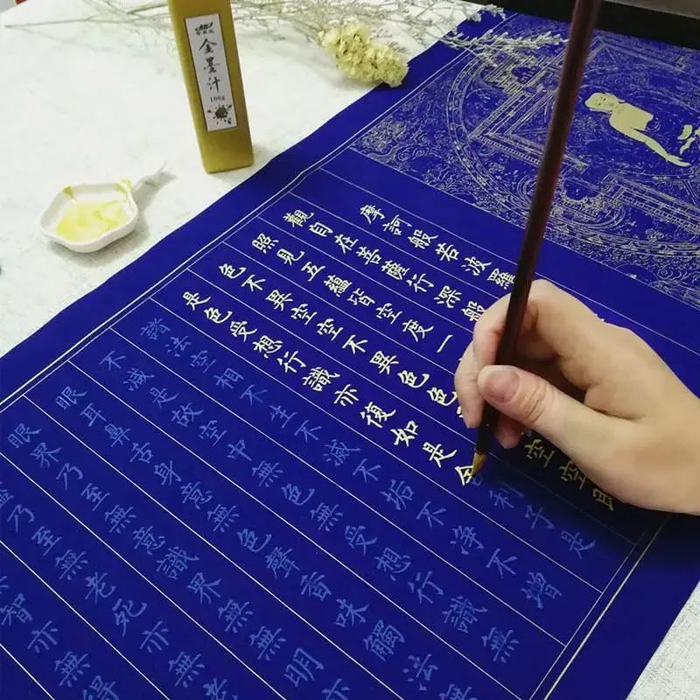 摩訶般若波羅
觀自在菩薩行深般
照見五蘊皆空度一
色不異空空不異色色
空空即
是色受想行識亦復如是舍利子是
諸法空相不生不滅不垢不淨不增
不減是故空中無色無受想行識無
眼耳鼻舌身意無色聲香味觸法
眼界乃至無意識界無無明亦
乃至無老死亦無老
智亦無得
金墨汁
100g